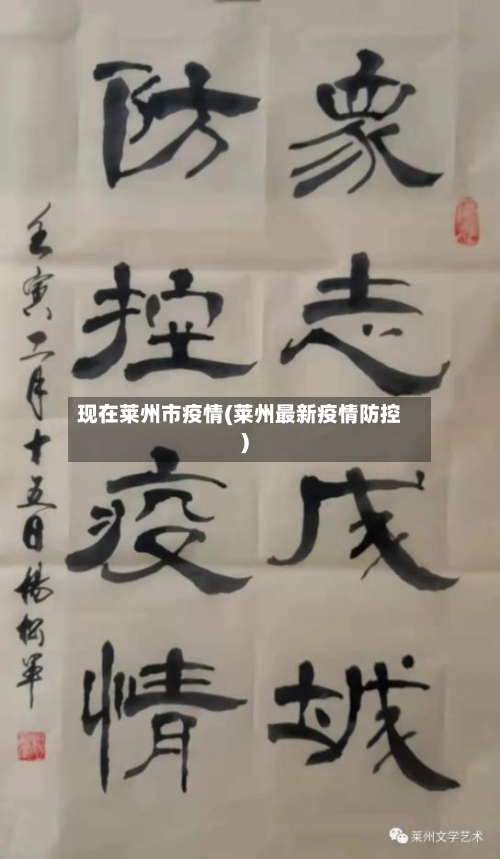 众志成城
防控疫情
壬寅二月十五日杨松军
现在莱州市疫情(莱州最新疫情防控
)
莱州文学艺术